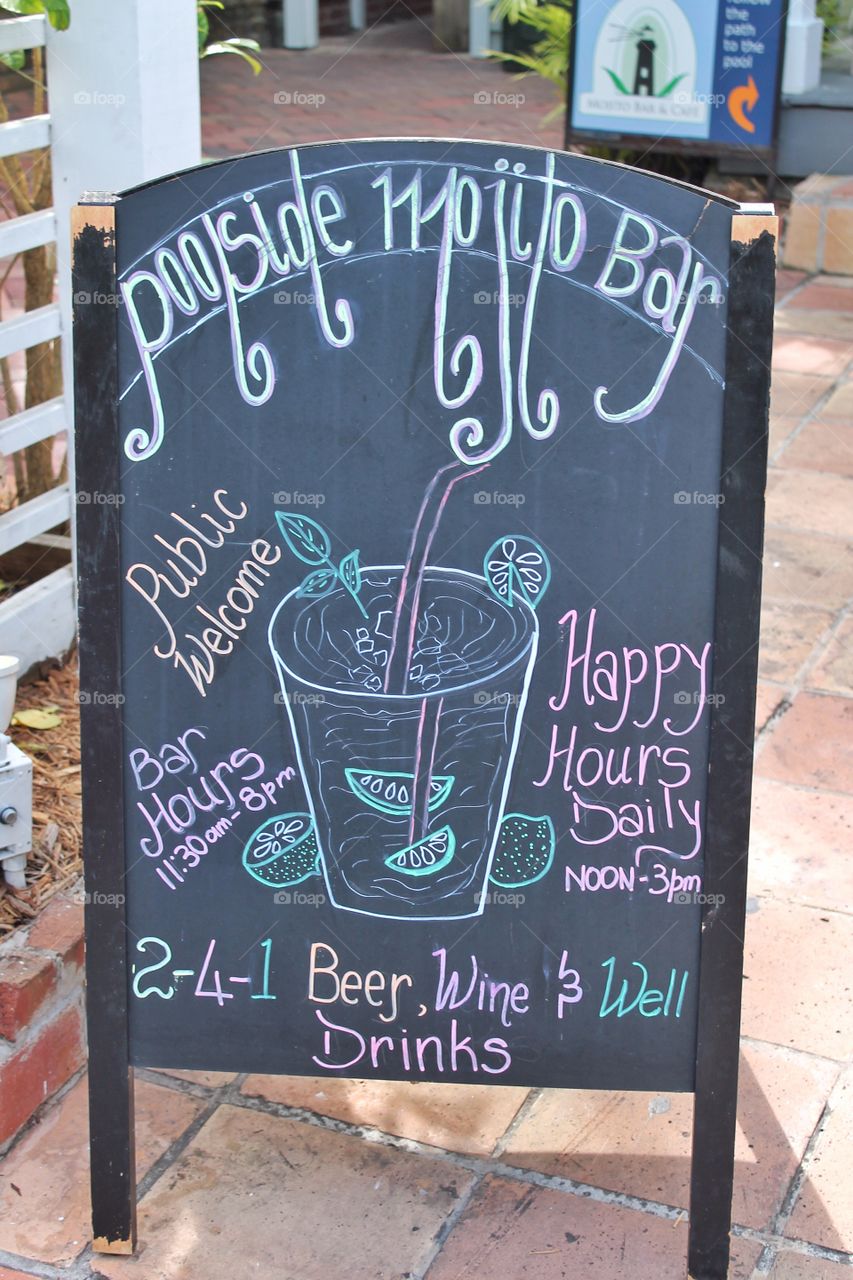 follow
the
path
to the
pool
MOJITO BAR & CAFE
poolside mojito Bar
Public
Welcome
Bar
Hours
11:30am-8pm
Happy
Hours
Daily
NOON-3pm
2-4-1 Beer, Wine & Well
Drinks
foap